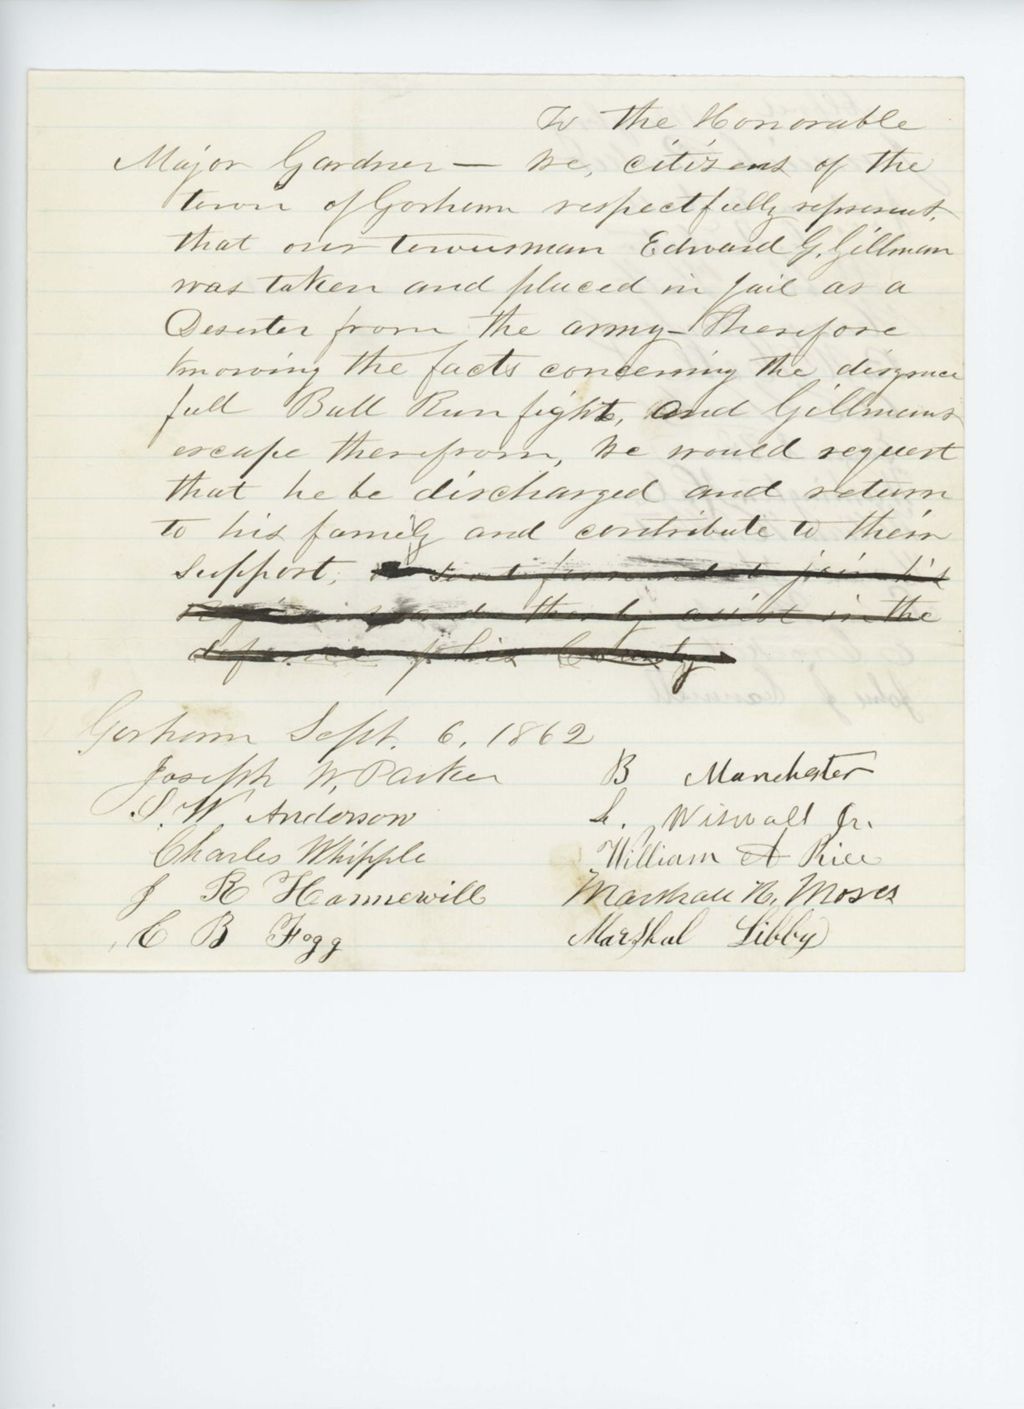 To the Honorable
Major Gardner — We, citizens of the
town of Gorham respectfully represent,
that our townsman Edward G. Gillman
was taken and placed in jail as a
Deserter from the army – Therefore
knowing the facts concerning the disgrace
full Bull Run fight, and Gillmans
escape therefrom, we would request
that he be discharged and return
to his family and contribute to their
support,
and therby assist in the
defence of his County
Gorham Sept. 6, 1862
Joseph W, Parker
S. W. Anderson
Charles Whipple
J R Hannewill
C B Fogg
B Manchester
L. Wiswall Jr.
William A Rice
Marshall N. Moses
Marshal Libby